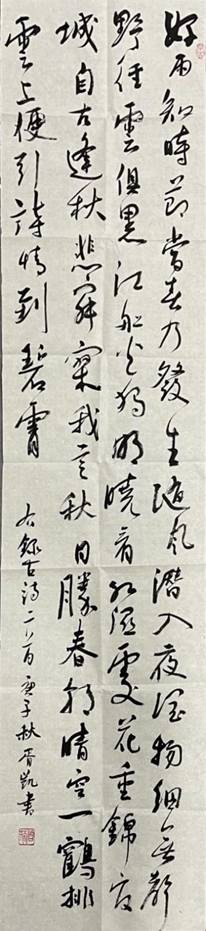 好雨知時節當春乃發生隨風潛入夜潤物細無聲
野徑雲俱黑江船火獨明曉看紅濕處花重錦官
城自古逢秋悲寂寥我言秋日勝春朝晴空一鶴排
雲上便引詩情到碧霄
右錄古詩二首庚子秋胥凱書